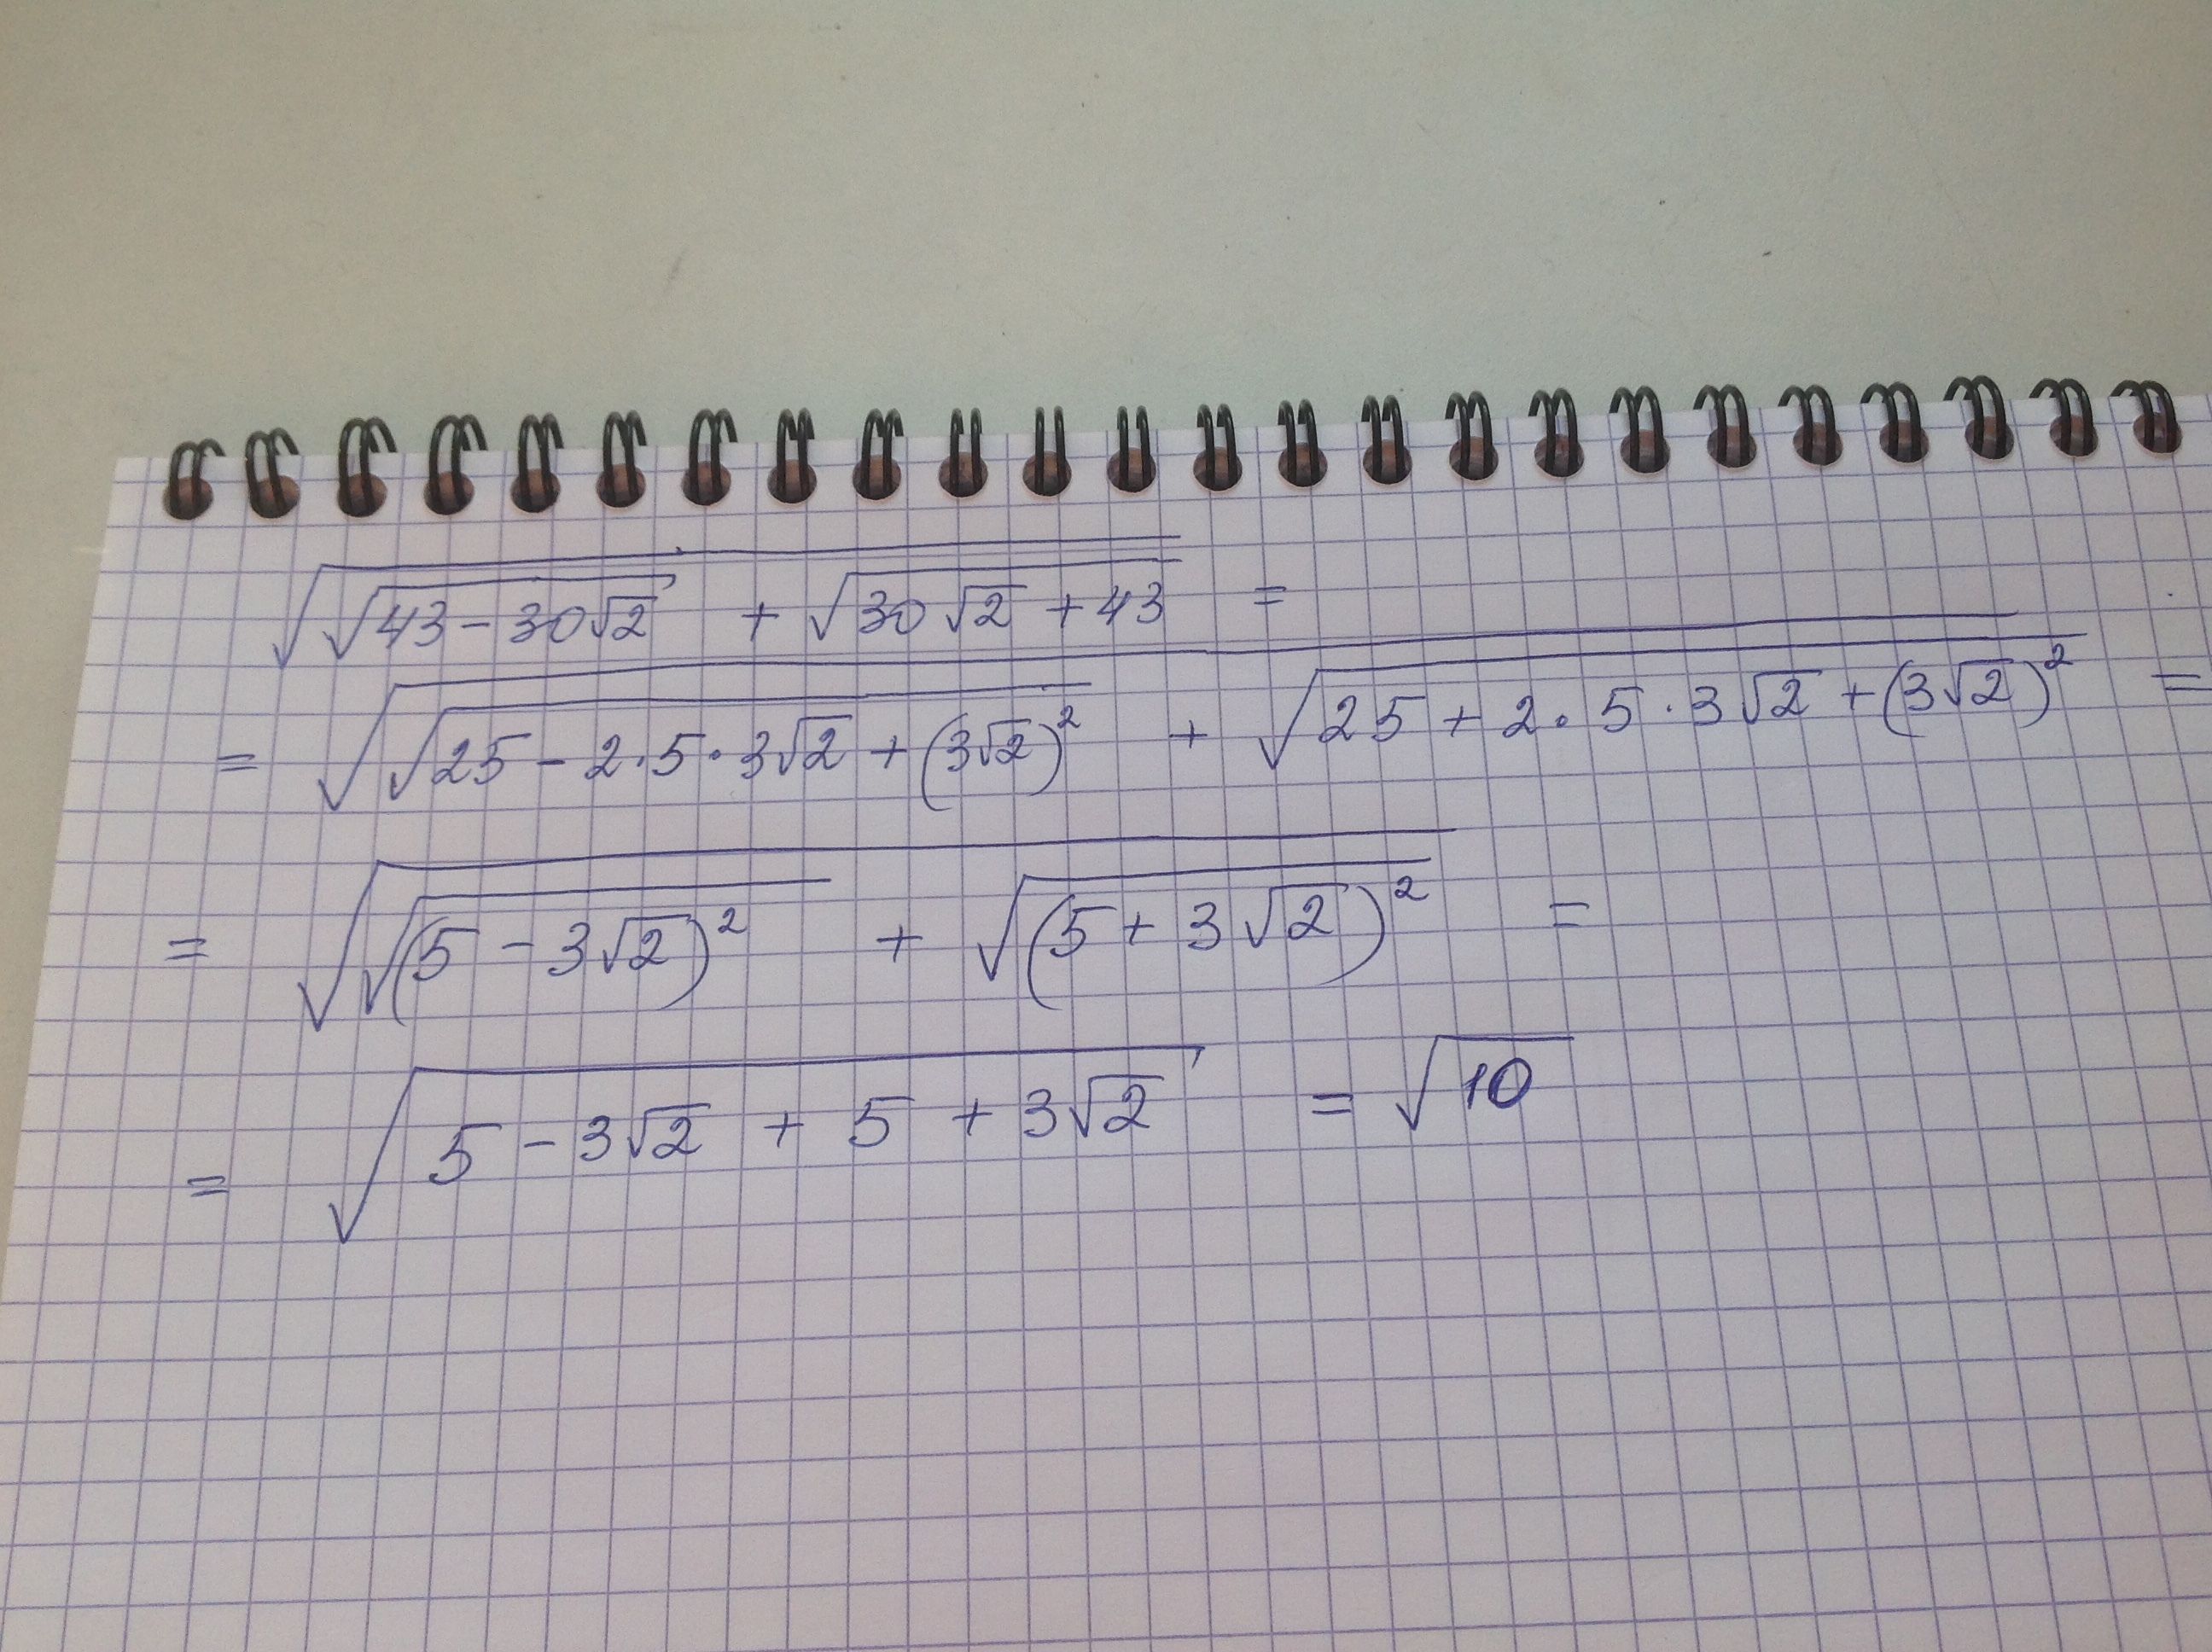 √(√(43 - 30√2) + √(30√2 + 43)) =
= √(√(25 - 2·5·3√2 + (3√2)²) + √(25 + 2·5·3√2 + (3√2)²)) =
= √(√((5 - 3√2)²) + √((5 + 3√2)²)) =
= √(5 - 3√2 + 5 + 3√2) = √10